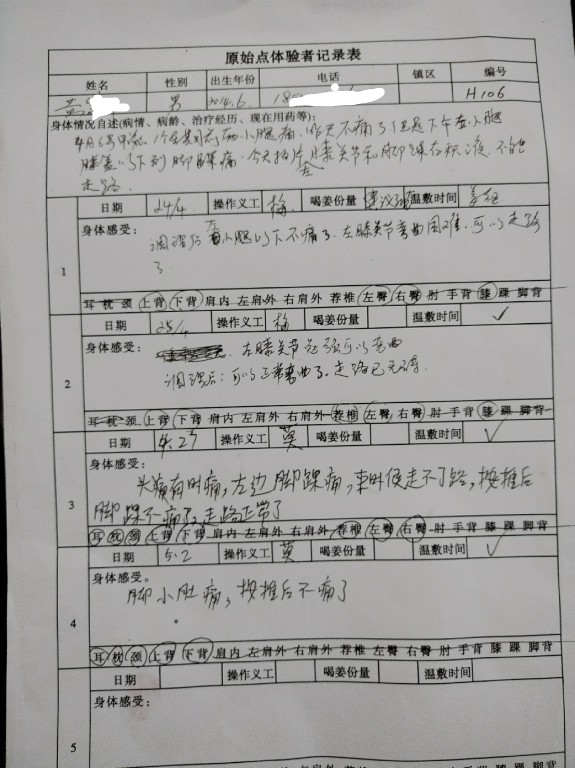 原始点体验者记录表
姓名 性别 出生年份 电话 镇区 编号
黄 男 2014.6 180 H106
身体情况自述(病情、病龄、治疗经历、现在用药等):
小腿痛,昨天不痛了 下午左小腿
膝盖以下到脚踝痛,今天拍片左膝关节和脚踝有积液,不能
走路.
1
日期 24/4 操作义工 梅, 喝姜份量 建议 温敷时间
身体感受:
调理后左小腿以下不痛了.左膝关节弯曲困难.可以走路
了.
耳 枕 颈 上背 下背 肩内 左肩外 右肩外 荐椎 左臀 右臀 肘 手背 膝 踝 脚背
2
日期 25/4 操作义工 梅 喝姜份量 温敷时间 ✓
身体感受:
左膝关节 可以弯曲
调理后:可以正常弯曲了.走路已无碍.
耳 枕 颈 上背 下背 肩内 左肩外 右肩外 荐椎 左臀 右臀 肘 手背 膝 踝 脚背
3
日期 4.27 操作义工 莫 喝姜份量 温敷时间 ✓
身体感受:
头痛有时痛,左边脚踝痛,来时候走不了路,按推后
脚踝不痛了,走路正常了
耳 枕 颈 上背 下背 肩内 左肩外 右肩外 荐椎 左臀 右臀 肘 手背 膝 踝 脚背
4
日期 5.2 操作义工 莫 喝姜份量 温敷时间 ✓
身体感受。
脚小肚痛,按推后不痛了
耳 枕 颈 上背 下背 肩内 左肩外 右肩外 荐椎 左臀 右臀 肘 手背 膝 踝 脚背
5
日期 操作义工 喝姜份量 温敷时间
身体感受:
左肩外 右肩外 荐椎 左臀 右臀 肘 手背 膝 踝 脚背